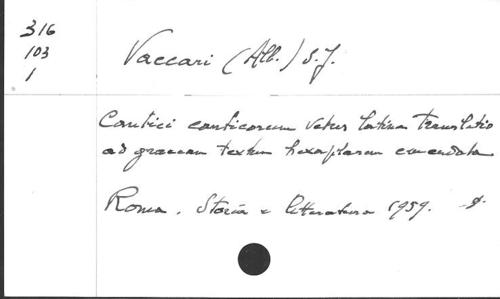 316
103
1
Vaccari (Alb.) S.J.
Cantici canticorum vetus latina translatio
ad graecam textum hexaplarem emendata
Roma. Storia e letteratura 1959.